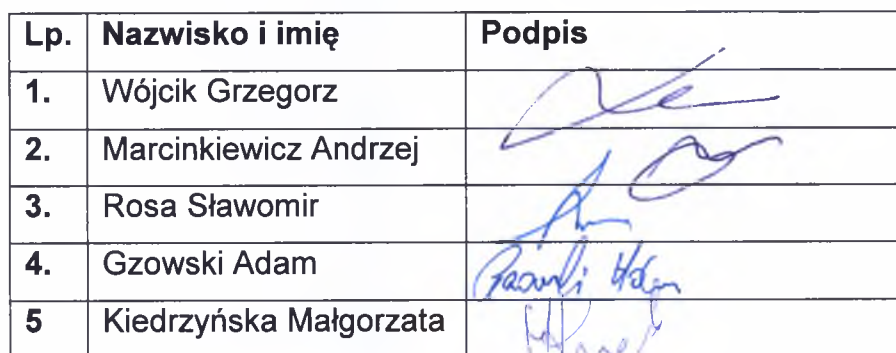 Lp. Nazwisko i imię Podpis
1. Wójcik Grzegorz
2. Marcinkiewicz Andrzej
3. Rosa Sławomir
4. Gzowski Adam
5 Kiedrzyńska Małgorzata